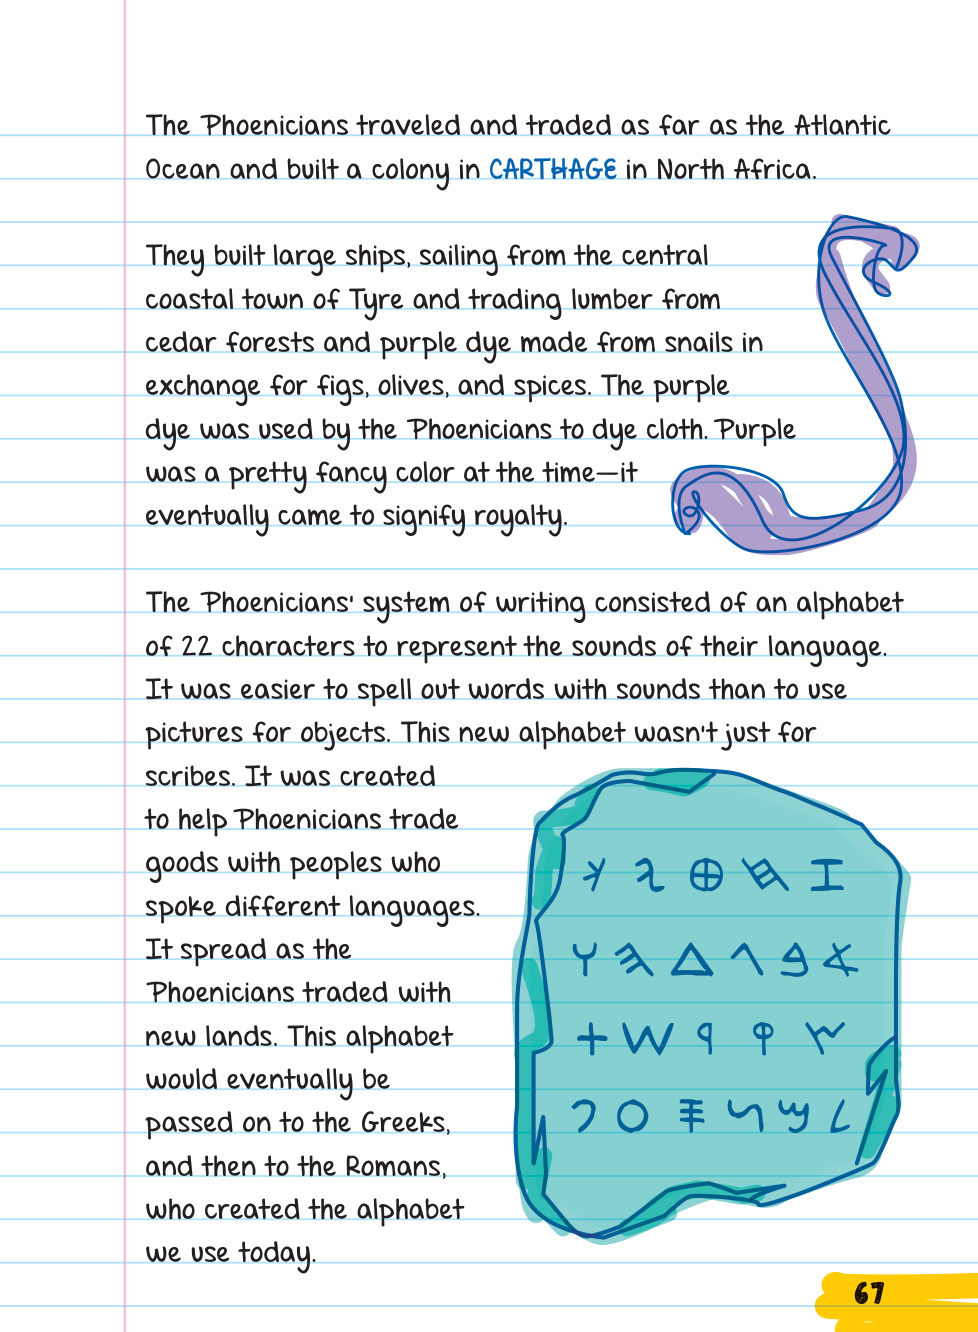 The Phoenicians traveled and traded as far as the Atlantic
Ocean and built a colony in CARTHAGE in North Africa.
They built large ships, sailing from the central
coastal town of Tyre and trading lumber from
cedar forests and purple dye made from snails in
exchange for figs, olives, and spices. The purple
dye was used by the Phoenicians to dye cloth. Purple
was a pretty fancy color at the time—it
eventually came to signify royalty.
The Phoenicians' system of writing consisted of an alphabet
of 22 characters to represent the sounds of their language.
It was easier to spell out words with sounds than to use
pictures for objects. This new alphabet wasn't just for
scribes. It was created
to help Phoenicians trade
goods with peoples who
spoke different languages.
It spread as the
Phoenicians traded with
new lands. This alphabet
would eventually be
passed on to the Greeks,
and then to the Romans,
who created the alphabet
we use today.
𐤉𐤈𐤇𐤆
𐤅𐤄𐤃𐤂𐤁𐤀
𐤕𐤔𐤓𐤒𐤑
𐤐𐤏𐤎𐤍𐤌𐤋
67